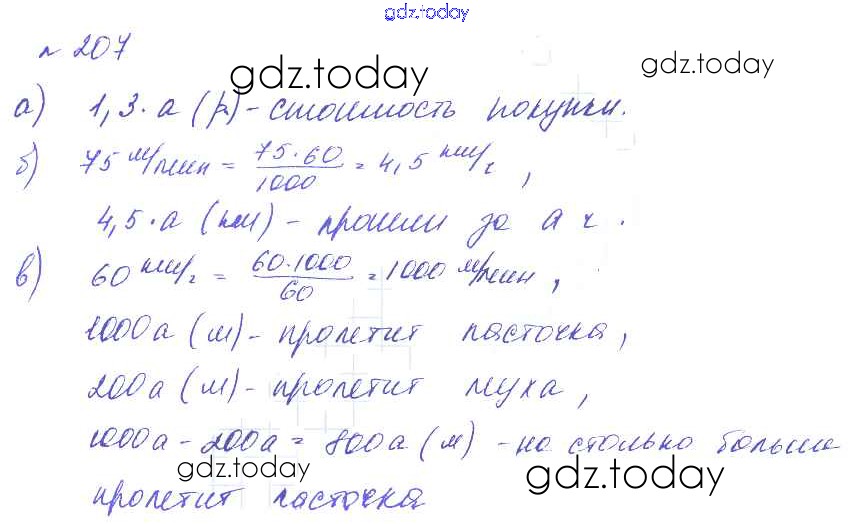 gdz.today
№ 207
gdz.today gdz.today
а) 1,3 · а (р) - стоимость покупки.
б) 75 м/мин = 75·60/1000 = 4,5 км/ч,
4,5·а (км) - прошли за а ч.
в) 60 км/ч = 60·1000/60 = 1000 м/мин,
1000а (м) - пролетит ласточка,
200а (м) - пролетит муха,
1000а - 200а = 800а (м) - на столько больше
gdz.today gdz.today
пролетит ласточка